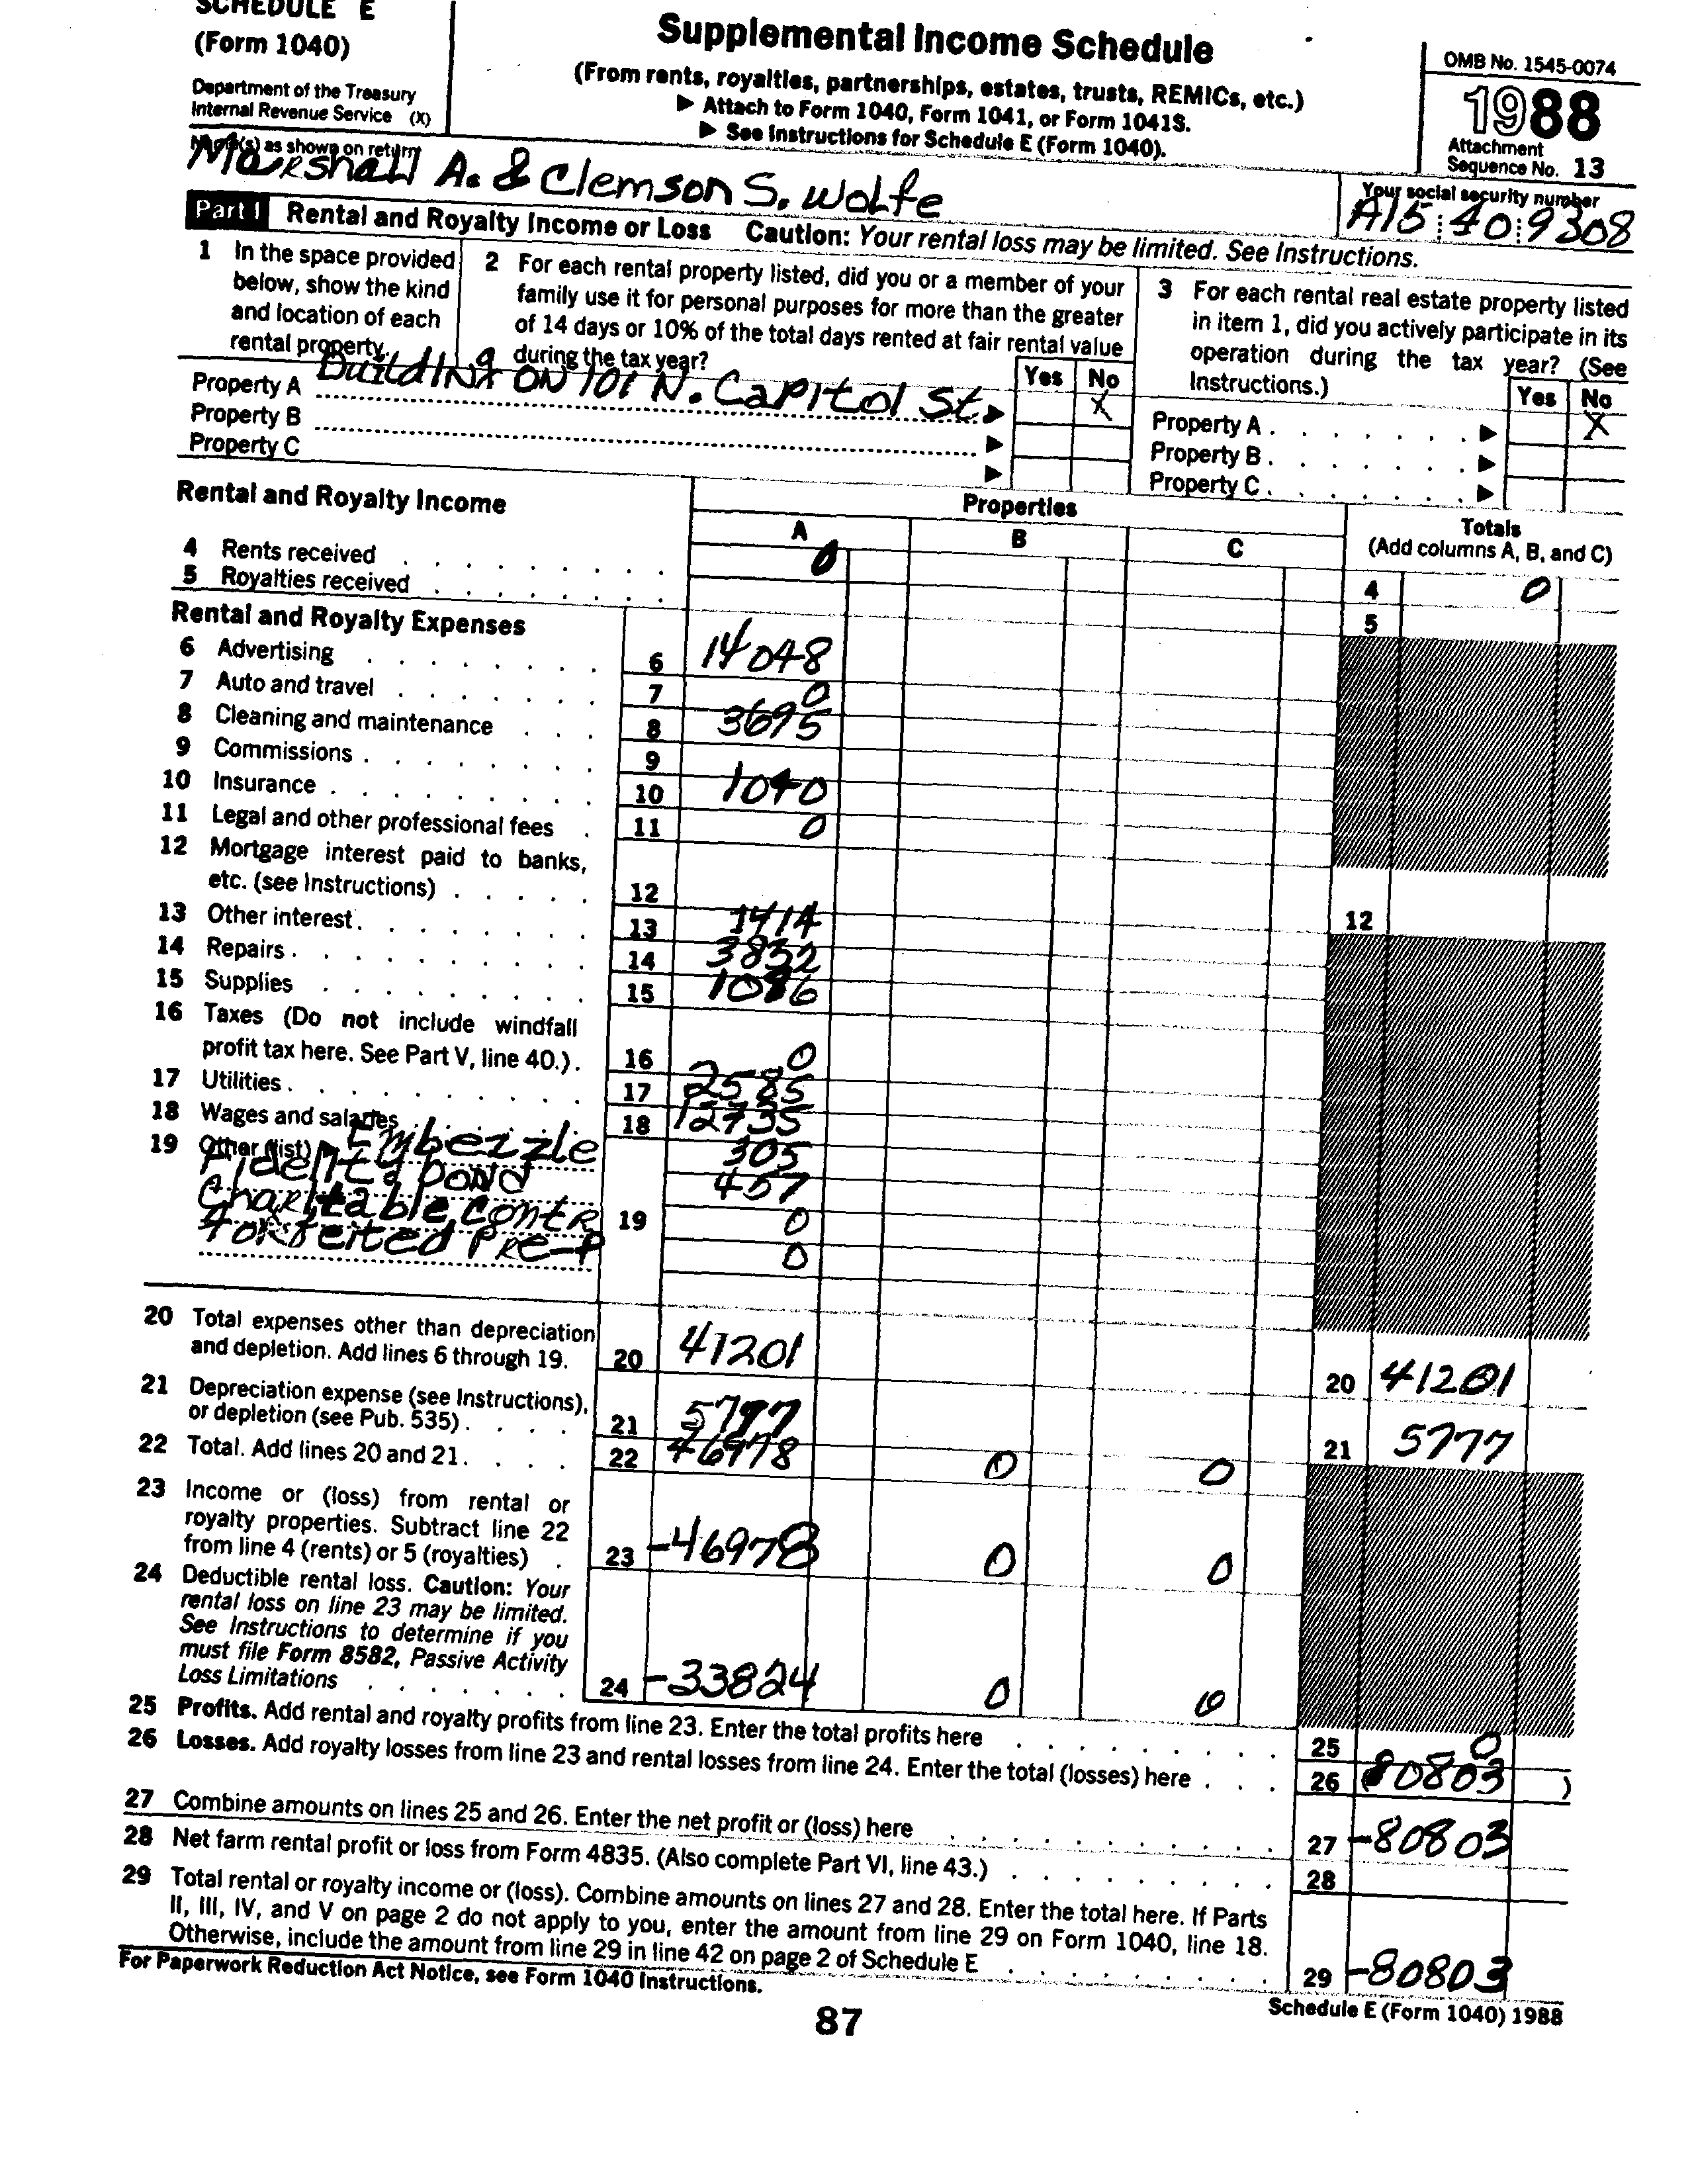 SCHEDULE E
(Form 1040)
Department of the Treasury
Internal Revenue Service (X)
Supplemental Income Schedule
(From rents, royalties, partnerships, estates, trusts, REMICs, etc.)
▶ Attach to Form 1040, Form 1041, or Form 1041S.
▶ See Instructions for Schedule E (Form 1040).
OMB No. 1545-0074
1988
Attachment
Sequence No. 13
Name(s) as shown on return
Marshall A. & Clemson S. Wolfe
Your social security number
A15 40 9308
Part I Rental and Royalty Income or Loss Caution: Your rental loss may be limited. See Instructions.
1 In the space provided
below, show the kind
and location of each
rental property.
2 For each rental property listed, did you or a member of your
family use it for personal purposes for more than the greater
of 14 days or 10% of the total days rented at fair rental value
during the tax year?
Yes No
3 For each rental real estate property listed
in item 1, did you actively participate in its
operation during the tax year? (See
Instructions.)
Yes No
Property A Building ON 101 N. Capitol St. ▶ X
Property B ▶
Property C ▶
Property A ▶ X
Property B ▶
Property C ▶
Rental and Royalty Income
Properties
A B C
Totals
(Add columns A, B, and C)
4 Rents received 0 4 0
5 Royalties received 5
Rental and Royalty Expenses
6 Advertising 6 14048
7 Auto and travel 7 0
8 Cleaning and maintenance 8 3695
9 Commissions 9
10 Insurance 10 1040
11 Legal and other professional fees 11 0
12 Mortgage interest paid to banks,
etc. (see Instructions) 12 12
13 Other interest 13 1414
14 Repairs 14 3832
15 Supplies 15 1086
16 Taxes (Do not include windfall
profit tax here. See Part V, line 40.) 16 0
17 Utilities 17 2585
18 Wages and salaries 18 12735
19 Other (list) ▶ Embezzle 305
Fidelity bond 457
Charitable contr 19 0
Forfeited Pre-P 0
20 Total expenses other than depreciation
and depletion. Add lines 6 through 19. 20 41201 20 41201
21 Depreciation expense (see Instructions),
or depletion (see Pub. 535) 21 5777 21 5777
22 Total. Add lines 20 and 21 22 46978 0 0
23 Income or (loss) from rental or
royalty properties. Subtract line 22
from line 4 (rents) or 5 (royalties) 23 -46978 0 0
24 Deductible rental loss. Caution: Your
rental loss on line 23 may be limited.
See Instructions to determine if you
must file Form 8582, Passive Activity
Loss Limitations 24 -33824 0 0
25 Profits. Add rental and royalty profits from line 23. Enter the total profits here 25 0
26 Losses. Add royalty losses from line 23 and rental losses from line 24. Enter the total (losses) here 26 (80803)
27 Combine amounts on lines 25 and 26. Enter the net profit or (loss) here 27 -80803
28 Net farm rental profit or loss from Form 4835. (Also complete Part VI, line 43.) 28
29 Total rental or royalty income or (loss). Combine amounts on lines 27 and 28. Enter the total here. If Parts
II, III, IV, and V on page 2 do not apply to you, enter the amount from line 29 on Form 1040, line 18.
Otherwise, include the amount from line 29 in line 42 on page 2 of Schedule E 29 -80803
For Paperwork Reduction Act Notice, see Form 1040 Instructions.
Schedule E (Form 1040) 1988
87